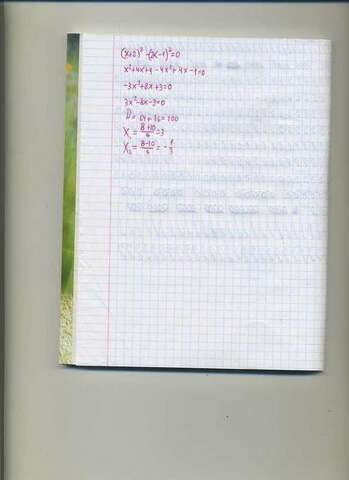 (x+2)² - (2x-1)² = 0
x²+4x+4 - 4x²+4x-1=0
-3x²+8x+3=0
3x²-8x-3=0
D = 64+36=100
X = 8+10/6 = 3
X₂ = 8-10/6 = - 1/3